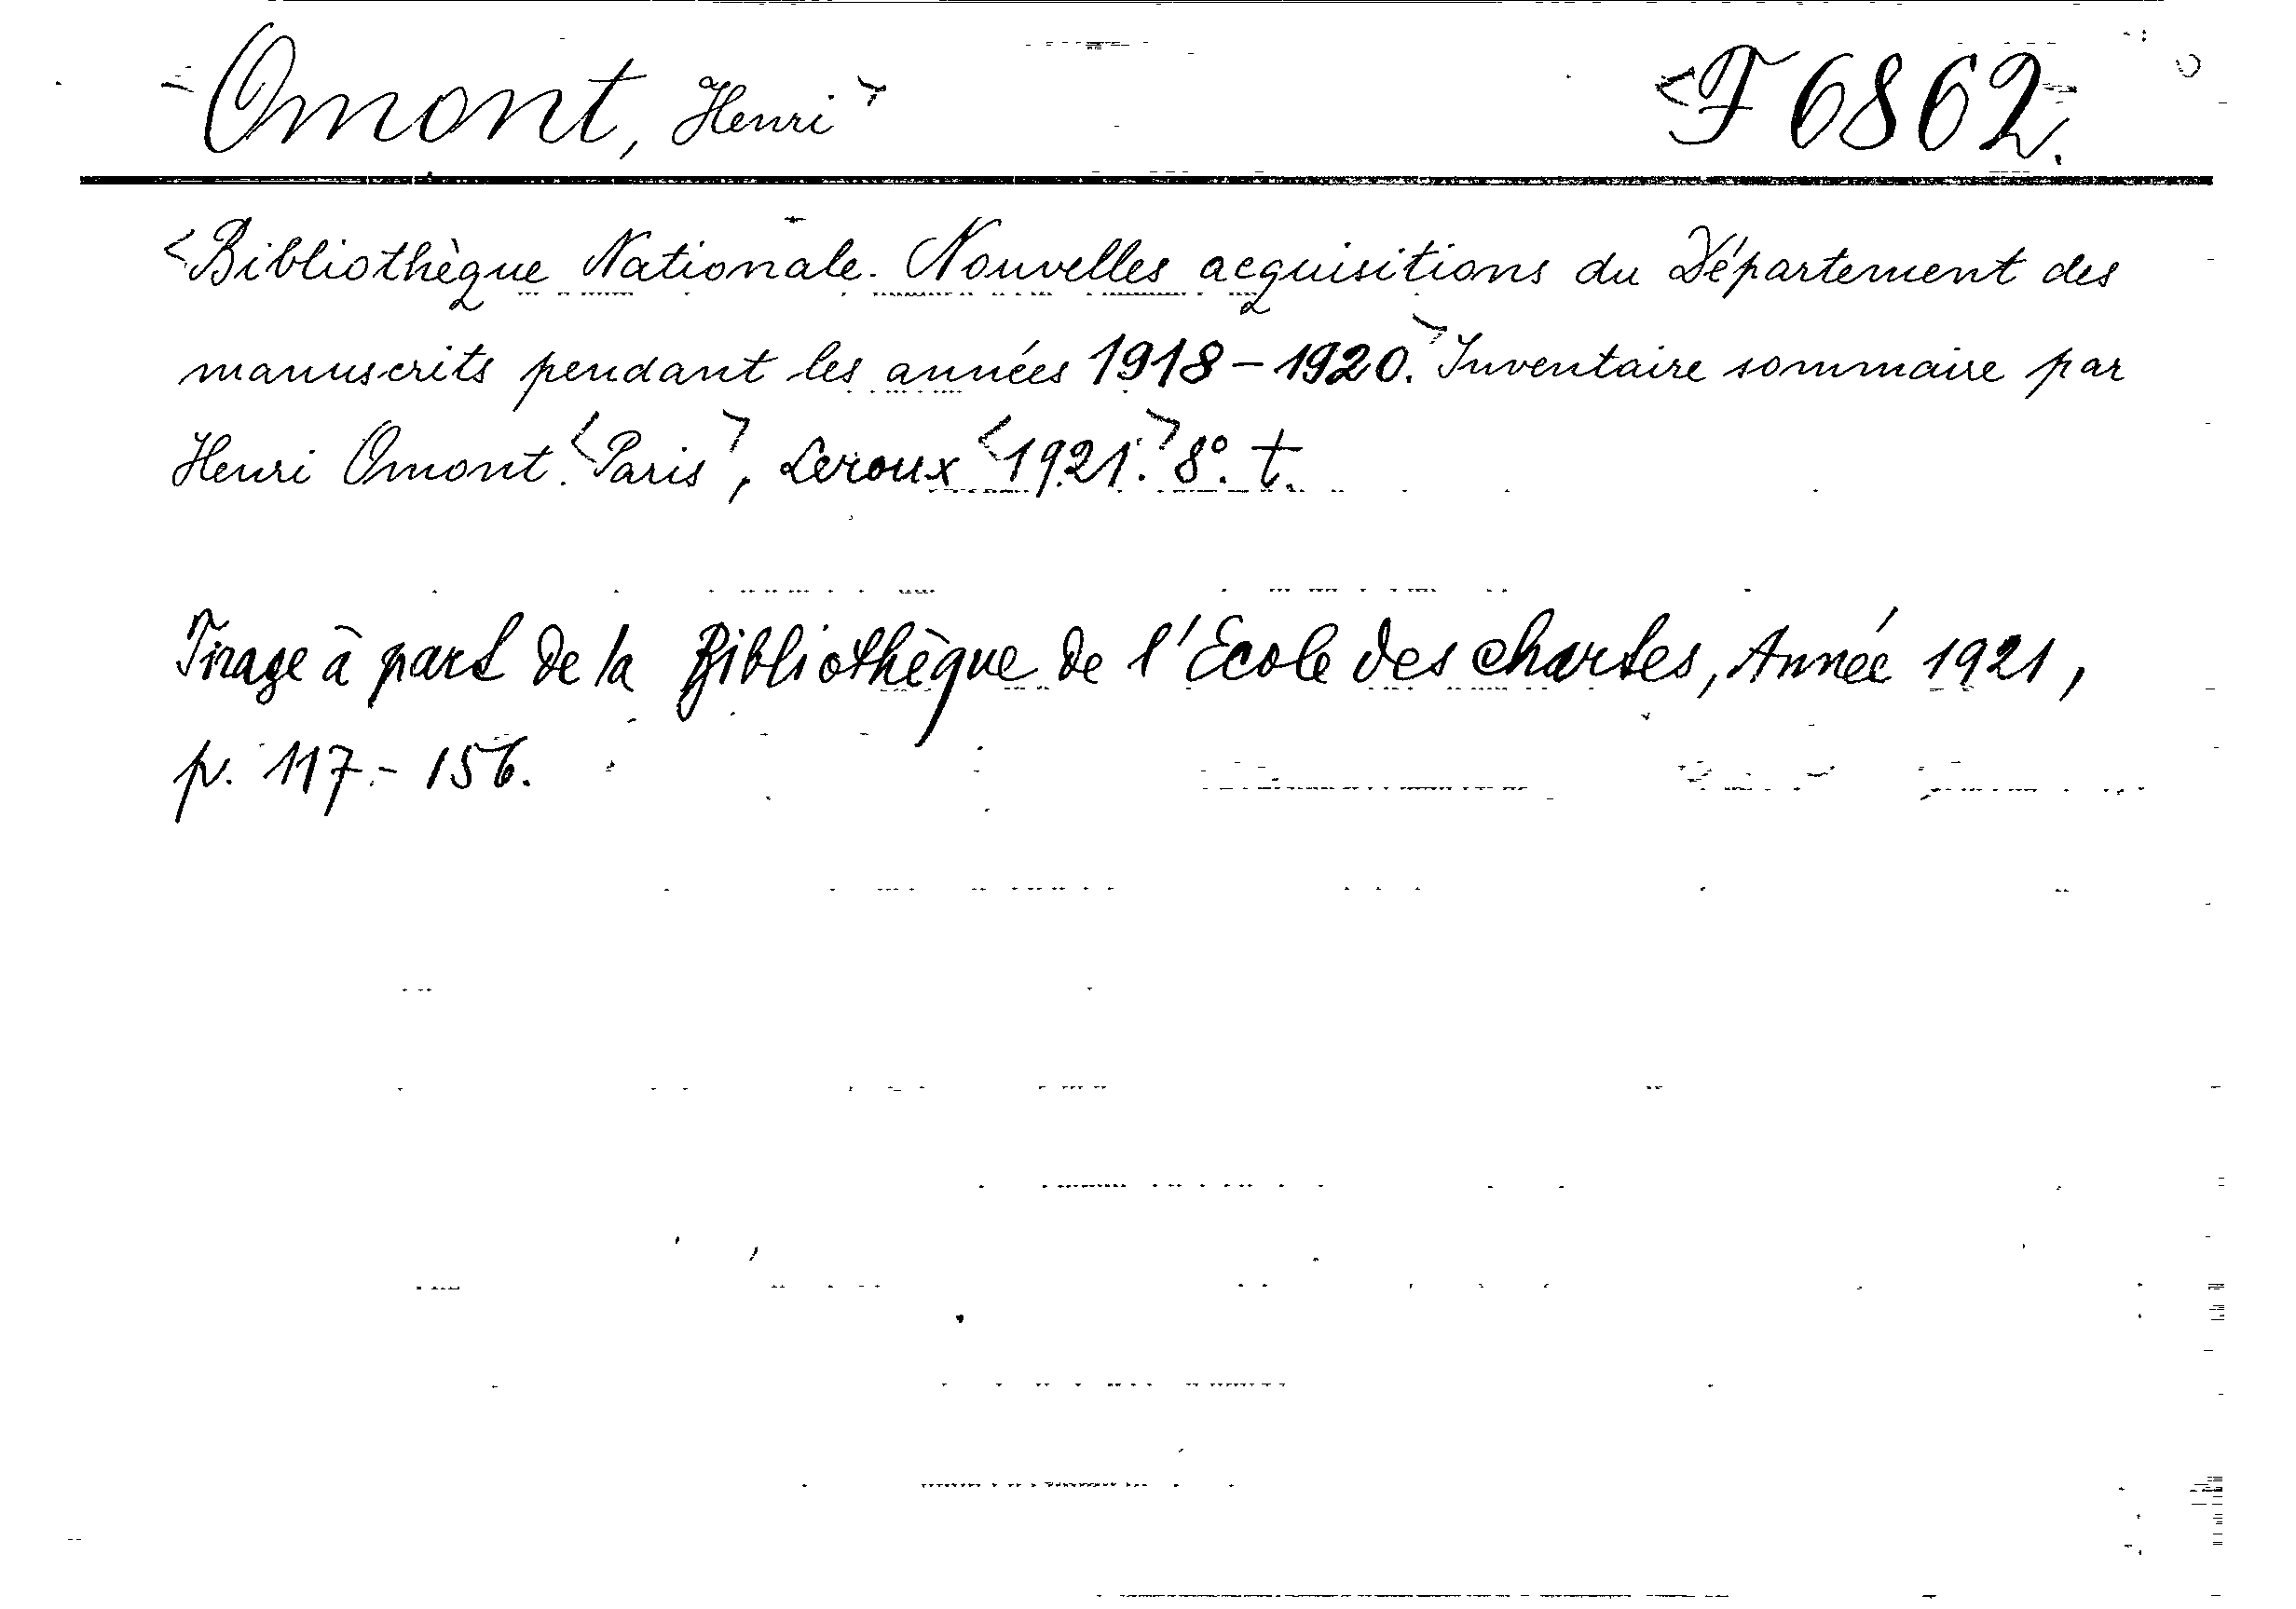 <Omont, Henri> <F 6862.>
<Bibliothèque Nationale. Nouvelles acquisitions du Département des
manuscrits pendant les années 1918-1920.> Inventaire sommaire par
Henri Omont. <Paris>, Leroux <1921.> 8°. t.
Tirage à part de la Bibliothèque de l'Ecole des chartes, Année 1921,
p. 117.-156.